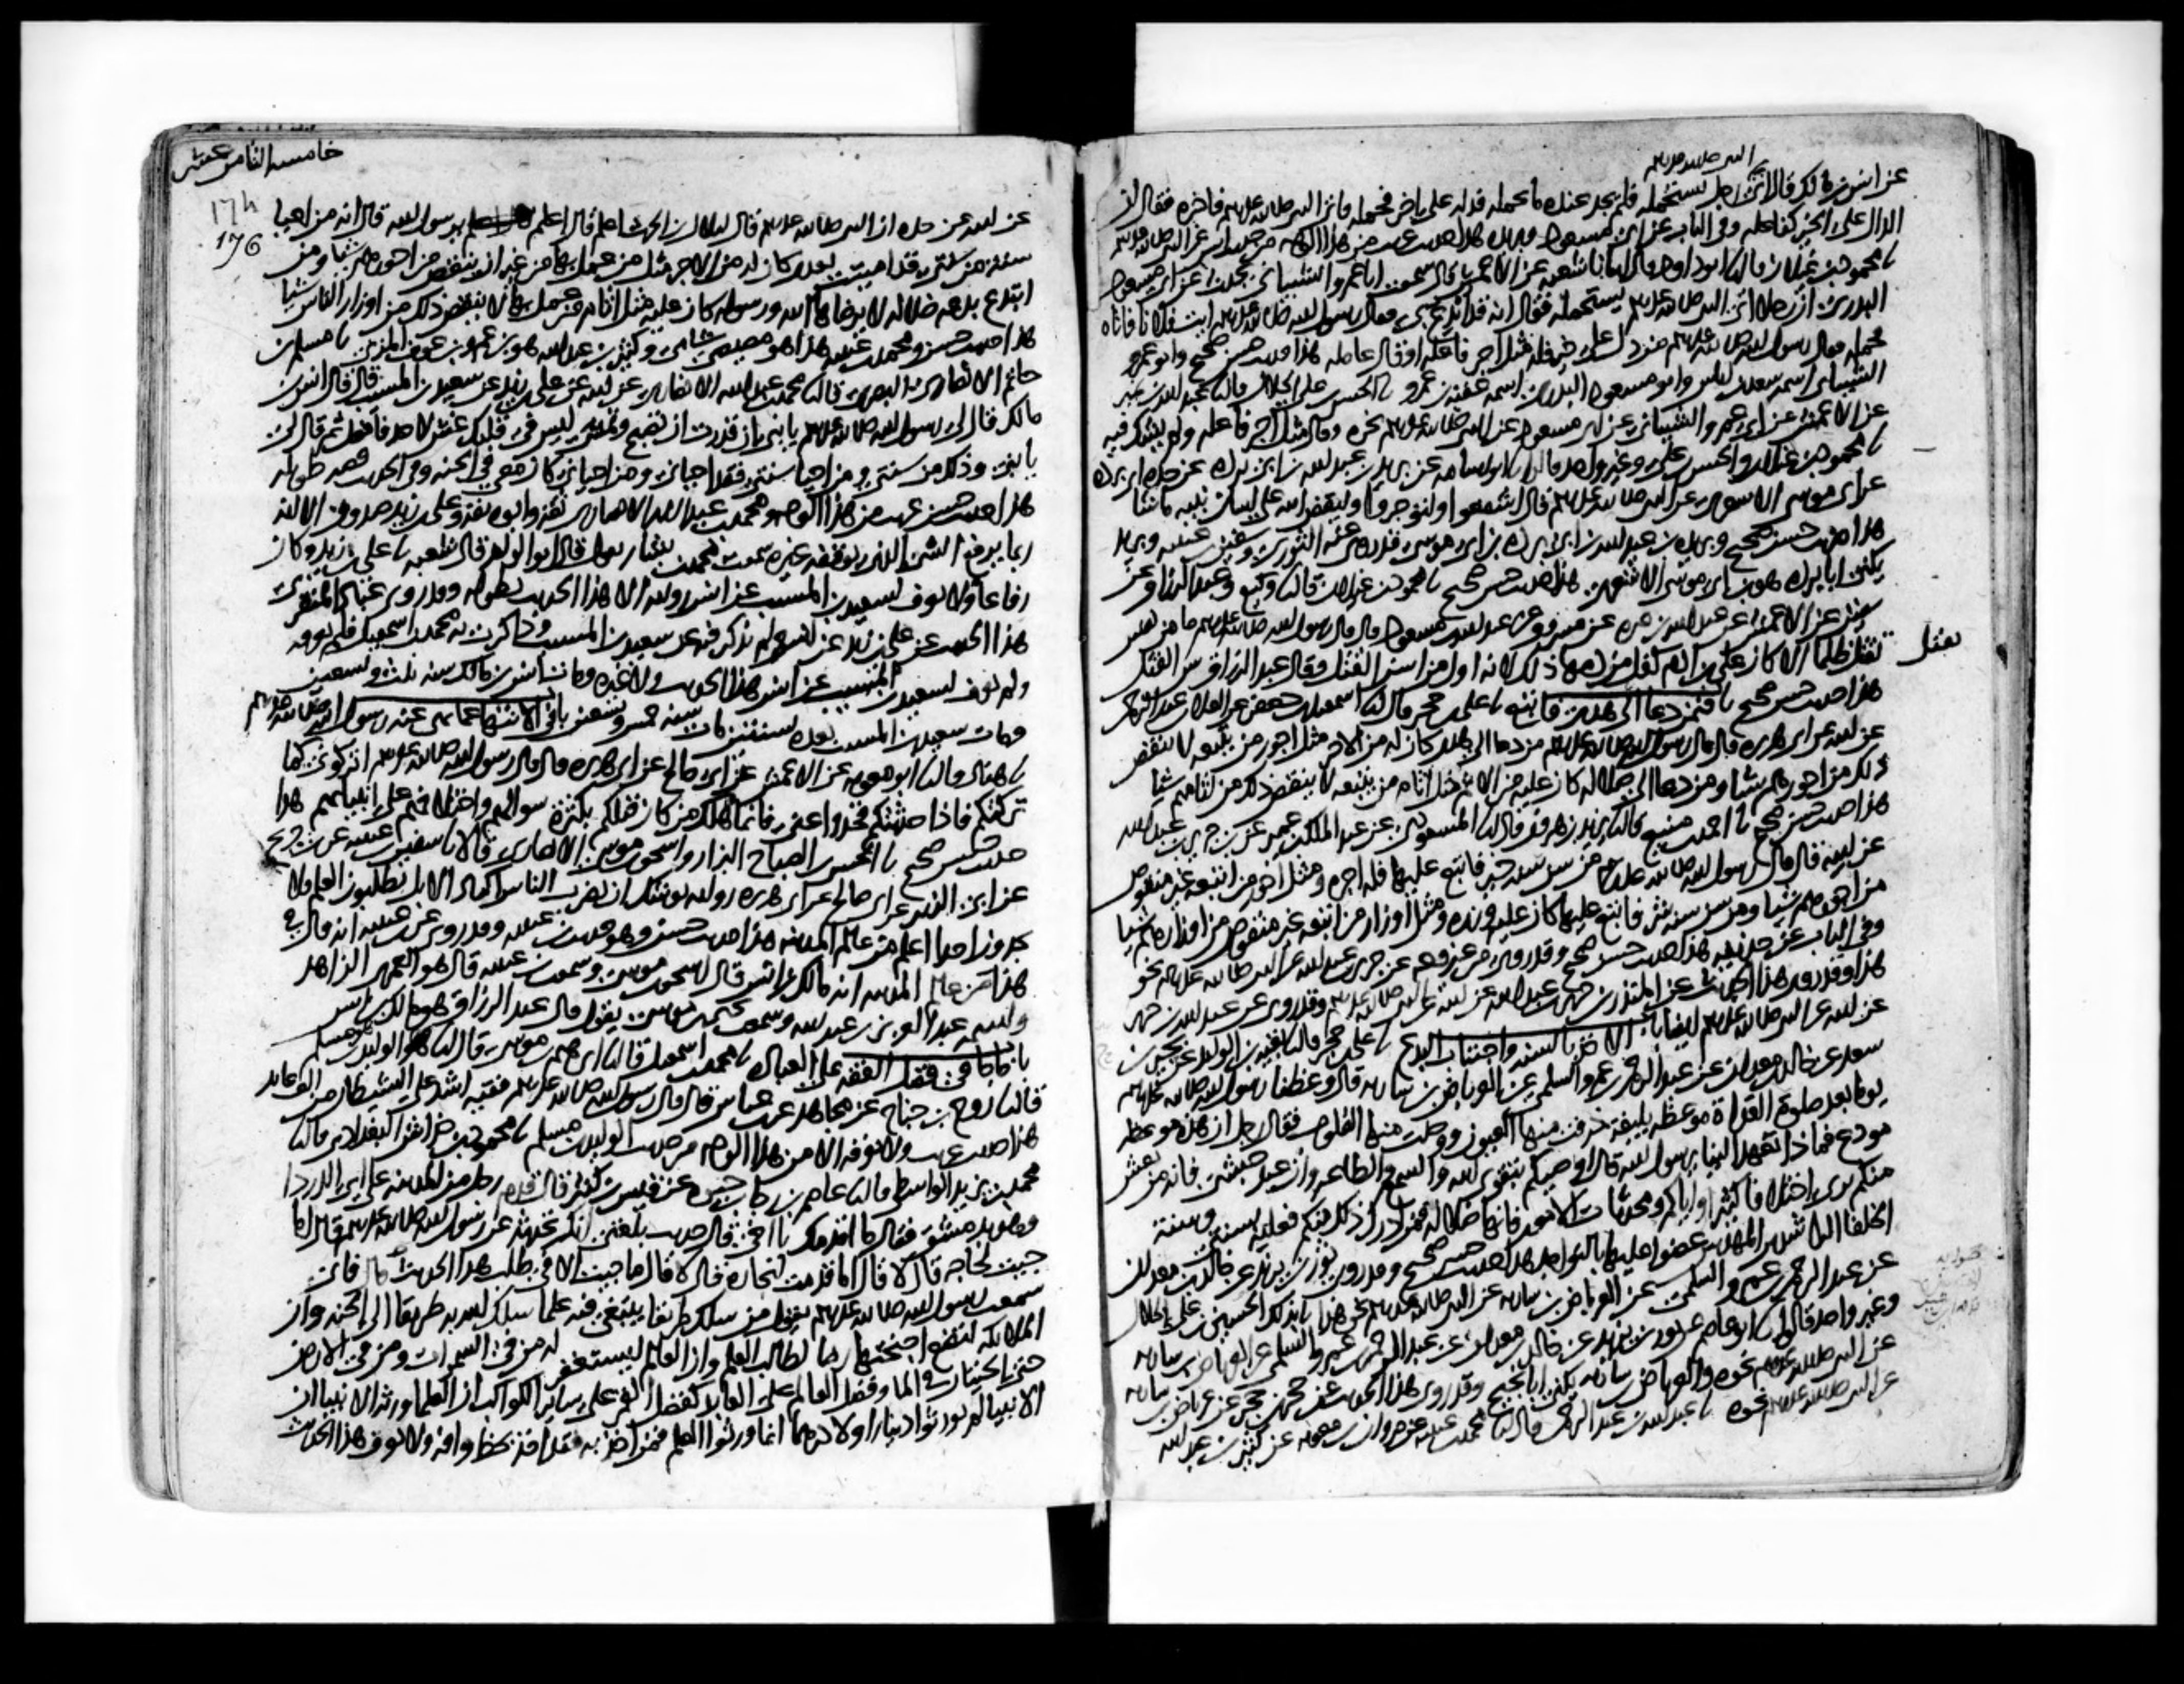 النبي صلى الله عليه وسلم
عن انس بن مالك قال اتى رجل يستحمله فلم يجد عنده ما يحمله فدله على اخر فحمله فاتى النبي صلى الله عليه وسلم فاخبره فقال ان
الدال على الخير كفاعله وفي الباب عن ابي مسعود وبريده هذا حديث غريب من هذا الوجه من حديث انس عن النبي صلى الله عليه وسلم
نا محمود بن غيلان قال نا ابو داود قال انبانا شعبه عن الاعمش قال سمعت ابا عمرو الشيباني يحدث عن ابي مسعود
البدري ان رجلا اتى النبي صلى الله عليه وسلم يستحمله فقال انه قد ابدع بي فقال رسول الله صلى الله عليه وسلم ايت فلانا فاتاه
فحمله فقال رسول الله صلى الله عليه وسلم من دل على خير فله مثل اجر فاعله او قال عامله هذا حديث حسن صحيح وابو عمرو
الشيباني اسمه سعد بن اياس وابو مسعود البدري اسمه عقبه بن عمرو نا الحسن بن علي الخلال قال نا عبد الله بن نمير
عن الاعمش عن ابي عمرو الشيباني عن ابي مسعود عن النبي صلى الله عليه وسلم نحوه وقال مثل اجر فاعله ولم يشك فيه
نا محمود بن غيلان والحسن بن علي وغير واحد قالوا نا ابو اسامه عن بريد بن عبد الله بن ابي برده عن جده ابي برده
عن ابي موسى الاشعري عن النبي صلى الله عليه وسلم قال اشفعوا ولتوجروا وليقض الله على لسان نبيه ما شا
هذا حديث حسن صحيح وبريد بن عبد الله بن ابي برده بن ابي موسى قد روى عنه الثوري وسفين بن عيينه وبريد
يكنى ابا برده هو بن ابي موسى الاشعري هذا حديث حسن صحيح نا محمود بن غيلان قال نا وكيع وعبد الرزاق عن
سفين عن الاعمش عن عبد الله بن مره عن مسروق عن عبد الله بن مسعود قال قال رسول الله صلى الله عليه وسلم ما من نفس
تقتل ظلما الا كان على بن ادم كفل من دمها ذلك لانه اول من اسن القتل وقال عبد الرزاق سن القتل
تقتل
هذا حديث حسن صحيح باب فيمن دعا الى هدى فاتبع نا علي بن حجر قال نا اسمعيل بن جعفر عن العلا بن عبد الرحمن
عن ابيه عن ابي هريره قال قال رسول الله صلى الله عليه وسلم من دعا الى هدى كان له من الاجر مثل اجور من يتبعه لا ينقص
ذلك من اجورهم شيا ومن دعا الى ضلاله كان عليه من الاثم مثل اثام من يتبعه لا ينقص ذلك من اثامهم شيا
هذا حديث حسن صحيح نا احمد بن منيع قال نا يزيد بن هرون قال نا المسعودي عن عبد الملك بن عمير عن بن جرير بن عبد الله
عن ابيه قال قال رسول الله صلى الله عليه وسلم من سن سنه خير فاتبع عليها فله اجره ومثل اجور من اتبعه غير منقوص
من اجورهم شيا ومن سن سنه شر فاتبع عليها كان عليه وزره ومثل اوزار من اتبعه غير منقوص من اوزارهم شيا
وفي الباب عن حذيفه هذا حديث حسن صحيح وقد روي من غير وجه عن جرير بن عبد الله عن النبي صلى الله عليه وسلم نحو
هذا وقد روي هذا الحديث عن المنذر بن جرير بن عبد الله عن ابيه عن النبي صلى الله عليه وسلم وقد روي عن عبيد الله بن جرير
عن ابيه عن النبي صلى الله عليه وسلم ايضا باب الاخذ بالسنه واجتناب البدع نا علي بن حجر قال نا بقيه بن الوليد عن بحير بن
سعد عن خالد بن معدان عن عبد الرحمن بن عمرو السلمي عن العرباض بن ساريه قال وعظنا رسول الله صلى الله عليه وسلم
يوما بعد صلوة الغداة موعظه بليغه ذرفت منها العيون ووجلت منها القلوب فقال رجل ان هذه موعظه
مودع فماذا تعهد الينا يرسول الله قال اوصيكم بتقوى الله والسمع والطاعه وان عبد حبشي فانه من يعش
منكم يرى اختلافا كثيرا واياكم ومحدثات الامور فانها ضلاله فمن ادرك ذلك منكم فعليه بسنتي وسنة
الخلفا الراشدين المهديين عضوا عليها بالنواجذ هذا حديث حسن صحيح وقد روى ثور بن يزيد عن خالد بن معدان
عن عبد الرحمن بن عمرو السلمي عن العرباض بن ساريه عن النبي صلى الله عليه وسلم نحو هذا نا بذلك الحسن بن علي الخلال
وغير واحد قالوا نا ابو عاصم عن ثور بن يزيد عن خالد بن معدان عن عبد الرحمن بن عمرو السلمي عن العرباض بن ساريه
عن النبي صلى الله عليه وسلم نحوه والعرباض بن ساريه يكنى ابا نجيح وقد روي هذا الحديث عن حجر بن حجر عن عرباض بن ساريه
عن النبي صلى الله عليه وسلم نحوه نا عبد الله بن عبد الرحمن قال نا محمد بن عيينه عن مروان بن معويه عن كثير بن عبد الله
خامسه الثامن عشر
176
عن ابيه عن جده ان النبي صلى الله عليه وسلم قال لبلال بن الحرث اعلم قال اعلم يرسول الله قال انه من احيا
سنه من سنتي قد اميتت بعدي كان له من الاجر مثل من عمل بها من غير ان ينقص من اجورهم شيا ومن
ابتدع بدعه ضلاله لا يرضاها الله ورسوله كان عليه مثل اثام من عمل بها لا ينقص ذلك من اوزار الناس شيا
هذا حديث حسن ومحمد بن عيينه هذا هو مصيصي شامي وكثير بن عبد الله هو بن عمرو بن عوف المزني نا مسلم بن
حاتم الانصاري البصري قال نا محمد بن عبد الله الانصاري عن ابيه عن علي بن زيد عن سعيد بن المسيب قال قال انس بن
مالك قال لي رسول الله صلى الله عليه وسلم يا بني ان قدرت ان تصبح وتمسي ليس في قلبك غش لاحد فافعل ثم قال لي
يا بني وذلك من سنتي ومن احيا سنتي فقد احياني ومن احياني كان معي في الجنه وفي الحديث قصه طويله
هذا حديث حسن غريب من هذا الوجه ومحمد بن عبد الله الانصاري ثقه وابوه ثقه وعلي بن زيد صدوق الا انه
ربما يرفع الشي الذي يوقفه غيره سمعت محمد بن بشار يقول قال ابو الوليد قال شعبه نا علي بن زيد وكان
رفاعا ولا نعرف لسعيد بن المسيب عن انس روايه الا هذا الحديث بطوله وقد روى عباد المنقري
هذا الحديث عن علي بن زيد عن انس ولم يذكر فيه عن سعيد بن المسيب وذاكرت به محمد بن اسمعيل فلم يعرفه
ولم يعرف لسعيد بن المسيب عن انس هذا الحديث ولا غيره ومات انس بن مالك سنه ثلث وتسعين
ومات سعيد بن المسيب بعده بسنتين مات سنه خمس وتسعين باب في الانتها عما نهى عنه رسول الله صلى الله عليه وسلم
نا هناد قال نا ابو معويه عن الاعمش عن ابي صالح عن ابي هريره قال قال رسول الله صلى الله عليه وسلم اتركوني كما
تركتكم فاذا حدثتكم فخذوا عني فانما هلك من كان قبلكم بكثرة سوالهم واختلافهم على انبيائهم هذا
حديث حسن صحيح نا الحسن بن الصباح البزار واسحق بن موسى الانصاري قالا نا سفين بن عيينه عن بن جريج
عن ابي الزبير عن ابي صالح عن ابي هريره روايه يوشك ان يضرب الناس اكباد الابل يطلبون العلم فلا
يجدون احدا اعلم من عالم المدينه هذا حديث حسن وهو حديث بن عيينه وقد روي عن بن عيينه انه قال في
هذا من عالم المدينه انه مالك بن انس قال اسحق بن موسى وسمعت بن عيينه قال هو العمري الزاهد
واسمه عبد العزيز بن عبد الله وسمعت يحيى بن موسى يقول قال عبد الرزاق هو مالك بن انس
باب ما جا في فضل الفقه على العباده نا محمد بن اسمعيل قال نا ابرهيم بن موسى قال نا الوليد بن مسلم
قال نا روح بن جناح عن مجاهد عن بن عباس قال قال رسول الله صلى الله عليه وسلم فقيه اشد على الشيطان من الف عابد
هذا حديث غريب ولا نعرفه الا من هذا الوجه من حديث الوليد بن مسلم نا محمود بن خداش البغدادي قال نا
محمد بن يزيد الواسطي قال نا عاصم بن رجا بن حيوه عن قيس بن كثير قال قدم رجل من المدينه على ابي الدردا
وهو بدمشق فقال ما اقدمك يا اخي قال حديث بلغني انك تحدثه عن رسول الله صلى الله عليه وسلم قال اما
جيت لحاجه قال لا قال اما قدمت لتجاره قال لا قال ما جيت الا في طلب هذا الحديث قال فاني
سمعت رسول الله صلى الله عليه وسلم يقول من سلك طريقا يبتغي فيه علما سلك الله به طريقا الى الجنه وان
الملائكه لتضع اجنحتها رضا لطالب العلم وان العالم ليستغفر له من في السموات ومن في الارض
حتى الحيتان في الما وفضل العالم على العابد كفضل القمر على ساير الكواكب ان العلما ورثة الانبيا ان
الانبيا لم يورثوا دينارا ولا درهما انما ورثوا العلم فمن اخذ به فقد اخذ بحظ وافر ولا نعرف هذا الحديث